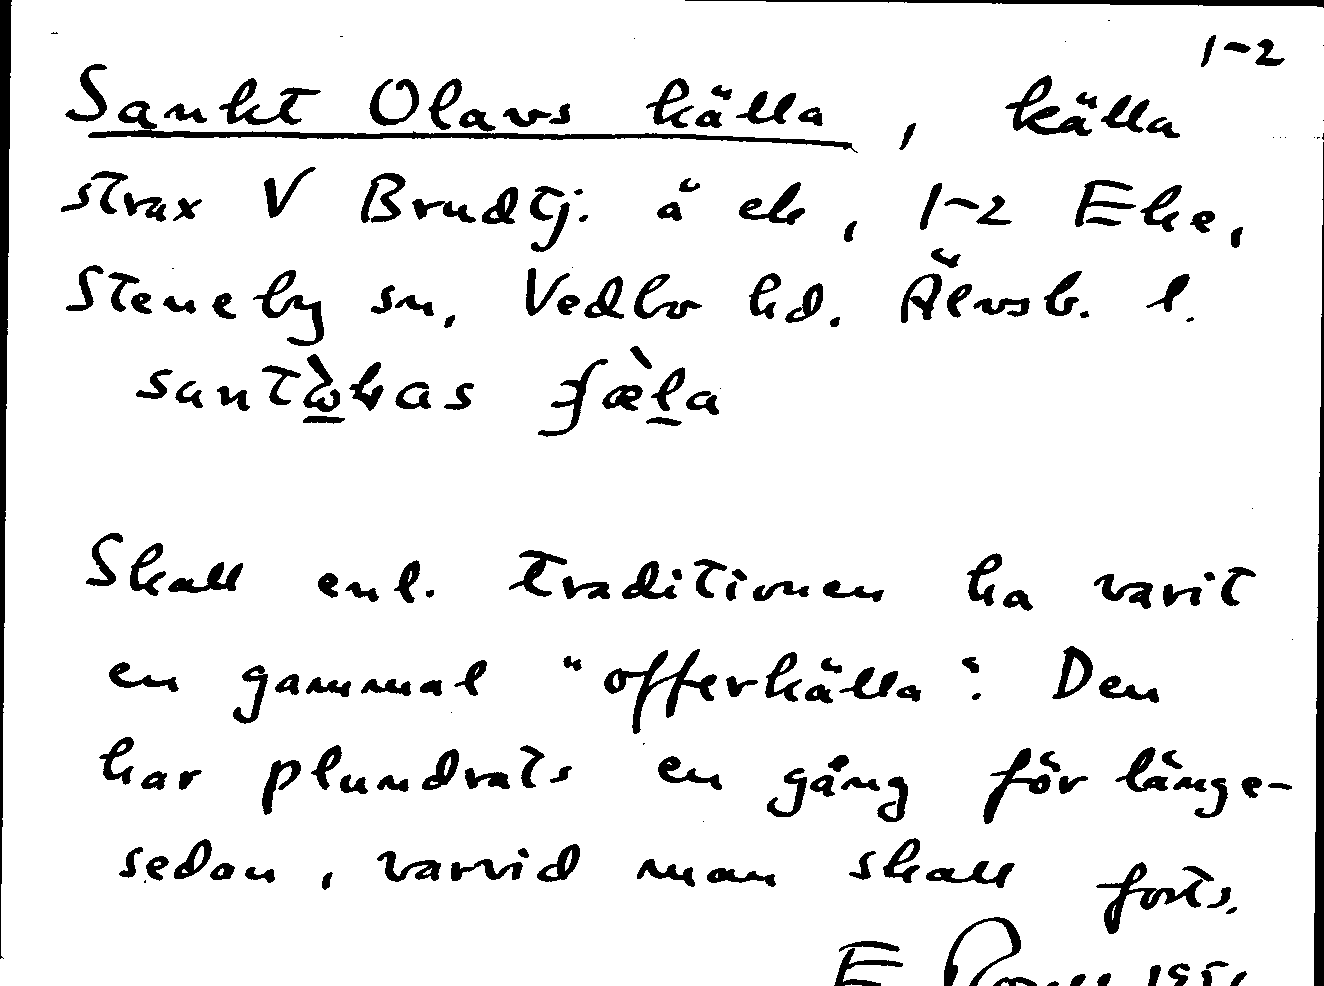 1-2
Sankt Olavs källa, källa
strax V Brudtj. å ek, 1-2 Eke,
Steneby sn, Vedbo hd. Älvsb. l.
Skall enl. traditionen ha varit
en gammal "offerkälla". Den
har plundrats en gång för länge-
sedan, varvid man skall forts.
E.